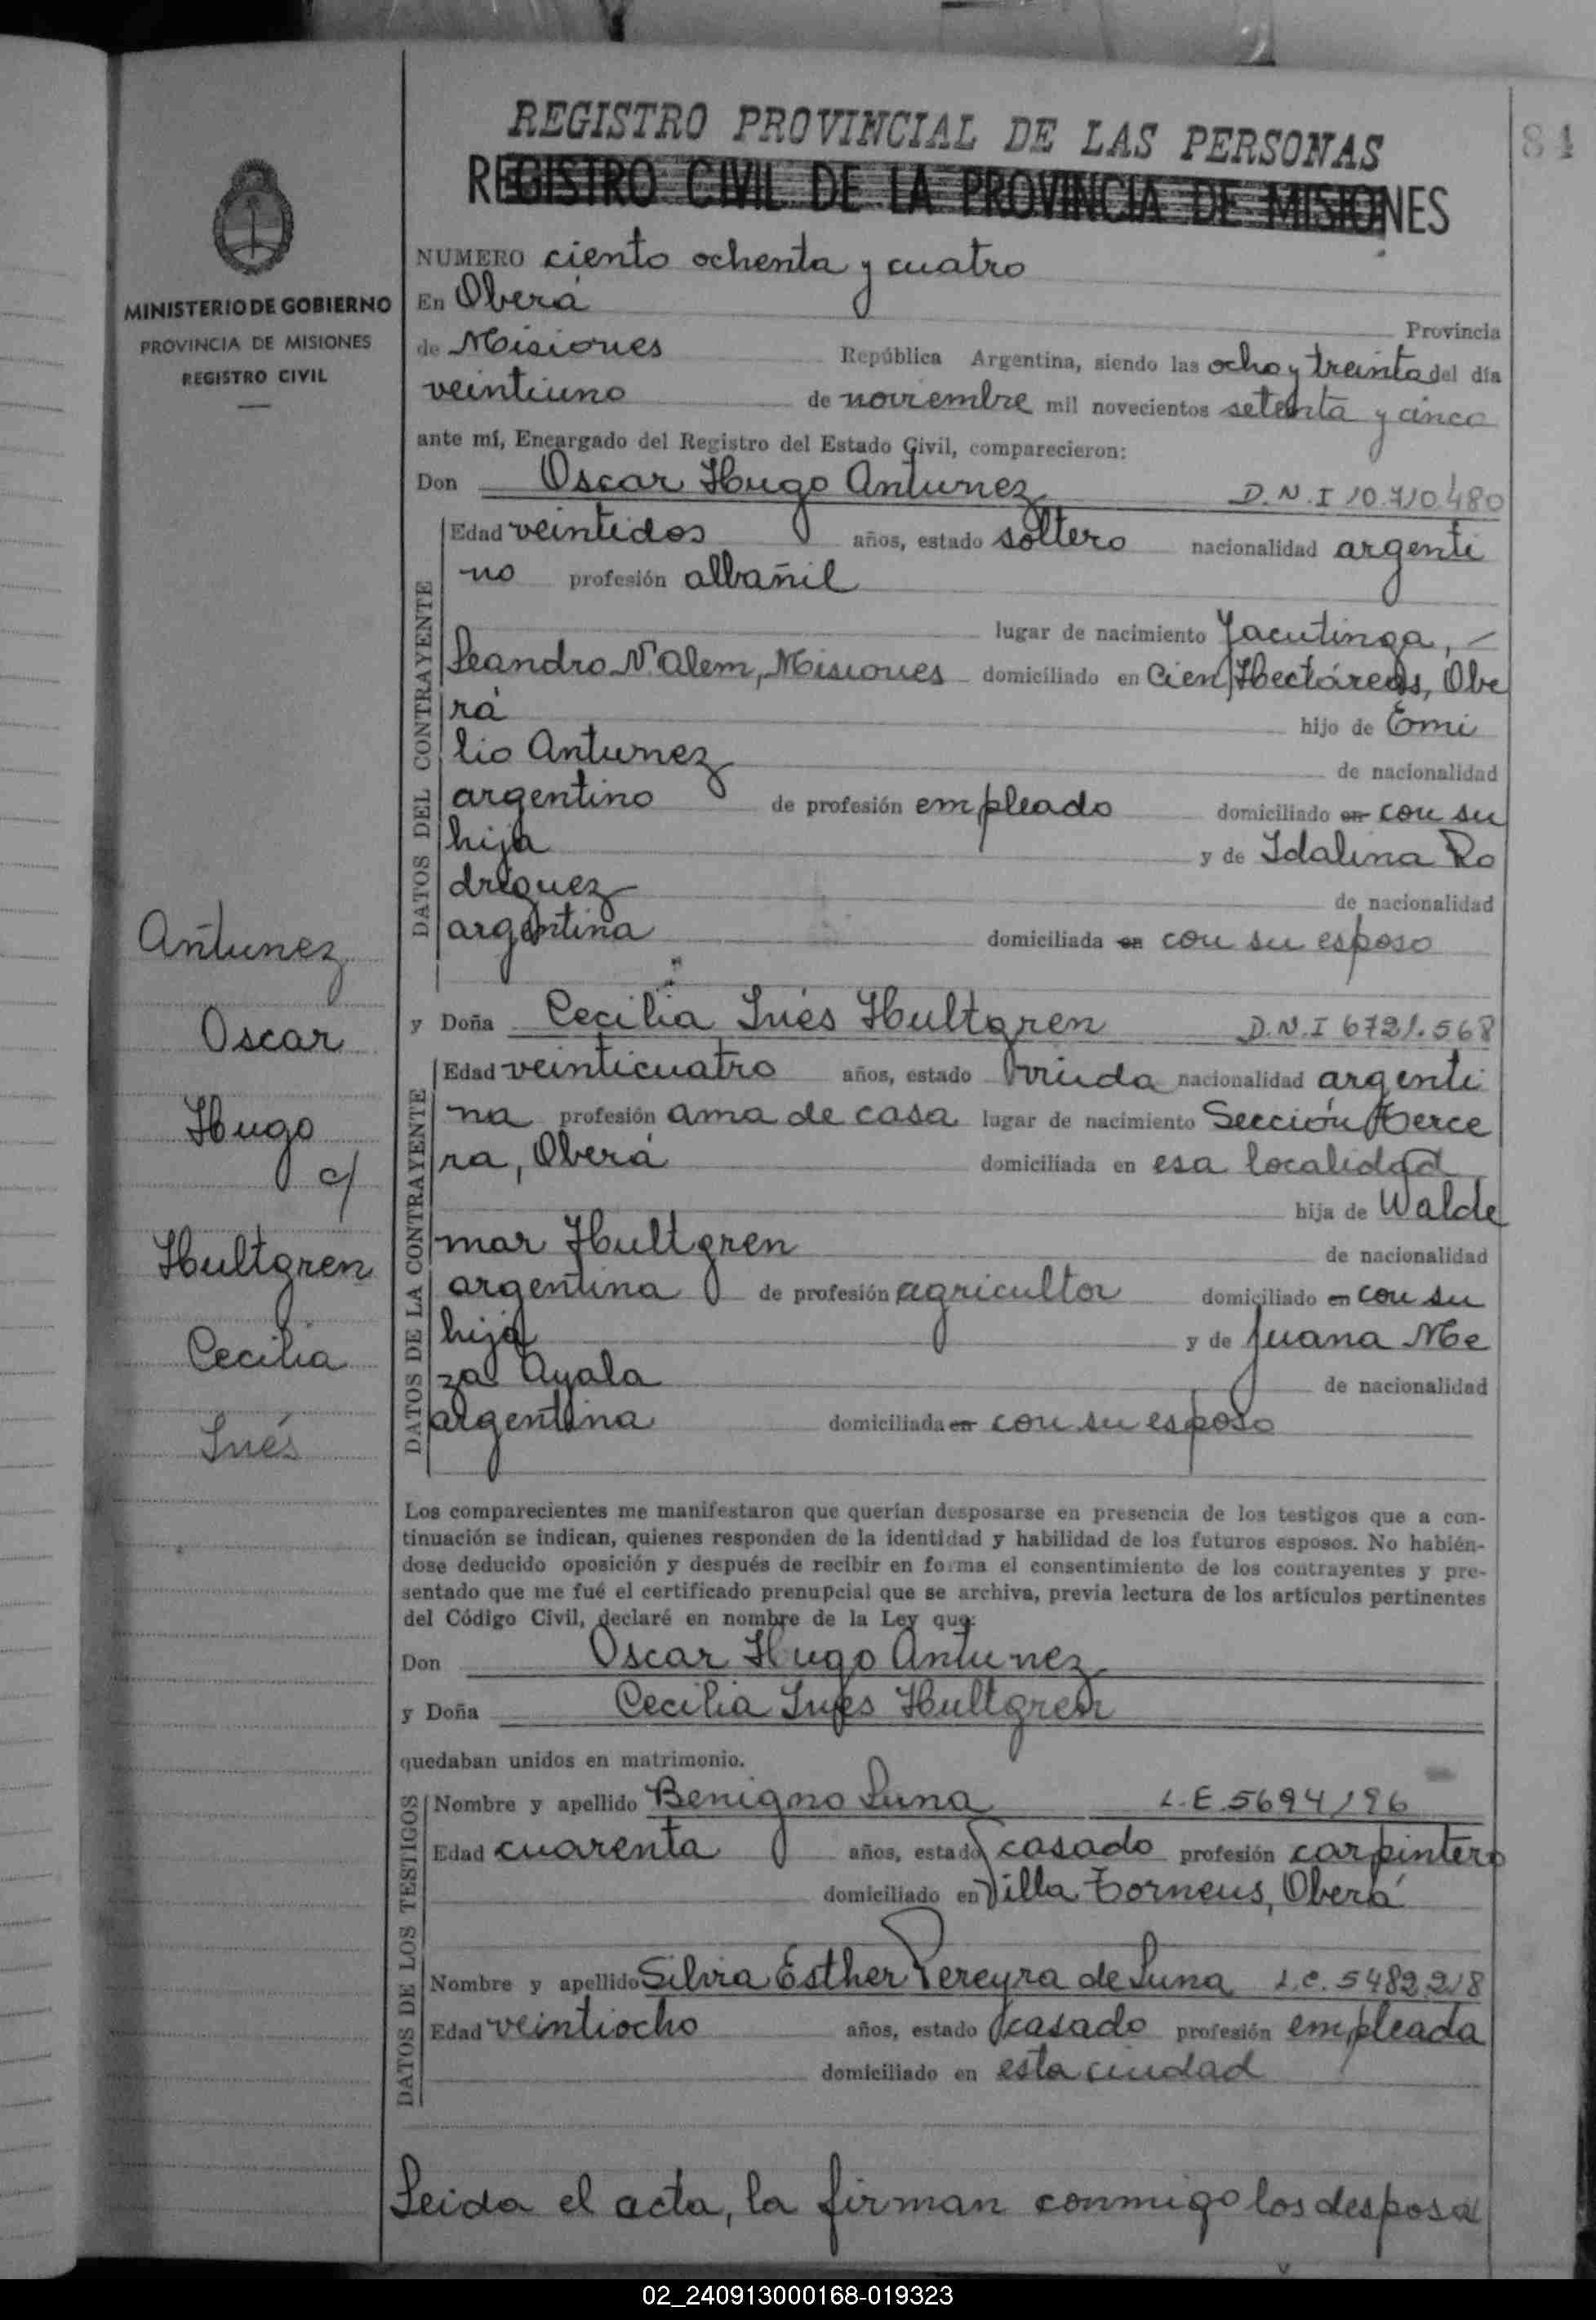 REGISTRO PROVINCIAL DE LAS PERSONAS
84
REGISTRO CIVIL DE LA PROVINCIA DE MISIONES
MINISTERIO DE GOBIERNO
PROVINCIA DE MISIONES
REGISTRO CIVIL
NUMERO ciento ochenta y cuatro
En Oberá Provincia
de Misiones República Argentina, siendo las ocho y treinta del día
veintiuno de noviembre mil novecientos setenta y cinco
ante mí, Encargado del Registro del Estado Civil, comparecieron:
Don Oscar Hugo Antunez D.N.I 10.710.480
DATOS DEL CONTRAYENTE
Edad veintidos años, estado soltero nacionalidad argenti
no profesión albañil
lugar de nacimiento Yacutinga, -
Leandro N. Alem, Misiones domiciliado en Cien Hectáreas, Obe
rá hijo de Emi
lio Antunez de nacionalidad
argentino de profesión empleado domiciliado en con su
hija y de Idalina Ro
driguez de nacionalidad
argentina domiciliada en con su esposo
Antunez
Oscar
Hugo
c/
Hultgren
Cecilia
Inés
y Doña Cecilia Inés Hultgren D.N.I 6721.568
DATOS DE LA CONTRAYENTE
Edad veinticuatro años, estado viuda nacionalidad argenti
na profesión ama de casa lugar de nacimiento Sección Terce
ra, Oberá domiciliada en esa localidad
hija de Walde
mar Hultgren de nacionalidad
argentina de profesión agricultor domiciliado en con su
hija y de Juana Me
za Ayala de nacionalidad
argentina domiciliada en con su esposo
Los comparecientes me manifestaron que querían desposarse en presencia de los testigos que a con-
tinuación se indican, quienes responden de la identidad y habilidad de los futuros esposos. No habién-
dose deducido oposición y después de recibir en forma el consentimiento de los contrayentes y pre-
sentado que me fué el certificado prenupcial que se archiva, previa lectura de los artículos pertinentes
del Código Civil, declaré en nombre de la Ley que:
Don Oscar Hugo Antunez
y Doña Cecilia Inés Hultgren
quedaban unidos en matrimonio.
DATOS DE LOS TESTIGOS
Nombre y apellido Benigno Luna L.E. 5694196
Edad cuarenta años, estado casado profesión carpintero
domiciliado en Villa Torneus, Oberá
Nombre y apellido Silvia Esther Pereyra de Luna L.C. 5482.218
Edad veintiocho años, estado casado profesión empleada
domiciliado en esta ciudad
Leida el acta, la firman conmigo los desposa
02_240913000168-019323